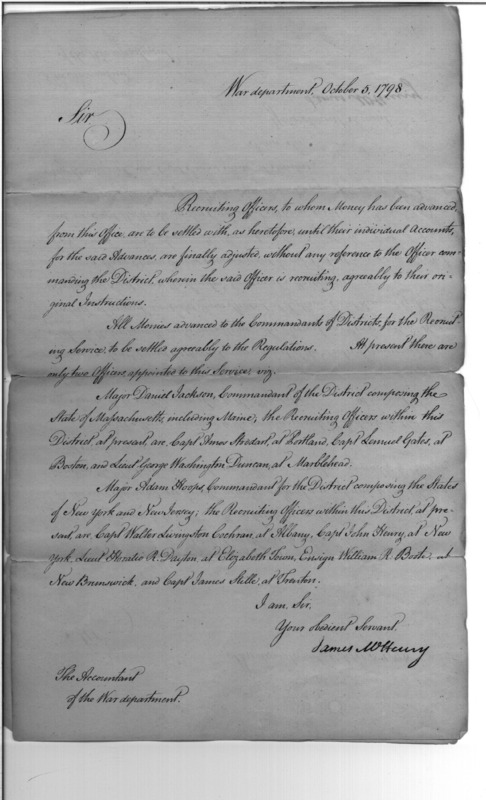 War department, October 5, 1798
Sir
Recruiting Officers, to whom Money has been advanced,
from this Office, are to be settled with, as heretofore, until their individual Accounts,
for the said Advances, are finally adjusted, without any reference to the Officer com-
manding the District, wherein the said Officer is recruiting, agreeably to their ori-
ginal Instructions.
All Monies advanced to the Commandants of Districts, for the Recruit-
ing Service, to be settled agreeably to the Regulations. At present there are
only two Officers appointed to this Service, viz.
Major Daniel Jackson, Commandant of the District composing the
State of Massachusetts, including Maine; the Recruiting Officers within this
District, at present, are, Capt. Amos Stodart, at Portland, Capt. Lemuel Gates, at
Boston, and Lieut. George Washington Duncan, at Marblehead.
Major Adam Hoops, Commandant for the District composing the States
of New York and New Jersey; the Recruiting Officers within this District, at pre-
sent, are, Capt. Walter Livingston Cochran, at Albany, Capt. John Henry, at New
York, Lieut. Horatio R. Dayton, at Elizabeth Town, Ensign William R. Boote, at
New Brunswick, and Capt. James Stille, at Trenton.
I am, Sir,
Your Obedient Servant,
James McHenry
The Accountant
of the War department.